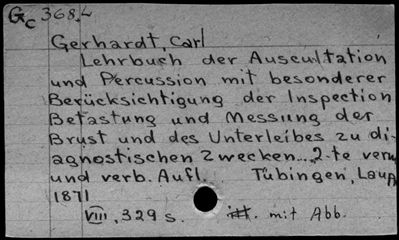 Gc 368.L
Gerhardt, Carl
Lehrbuch der Auscultation
und Percussion mit besonderer
Berücksichtigung der Inspection
Betastung und Messung der
Brust und des Unterleibes zu di-
agnostischen Zwecken... 2-te verm
und verb. Aufl. Tübingen, Laupp
1871
VIII, 329 s. mit Abb.